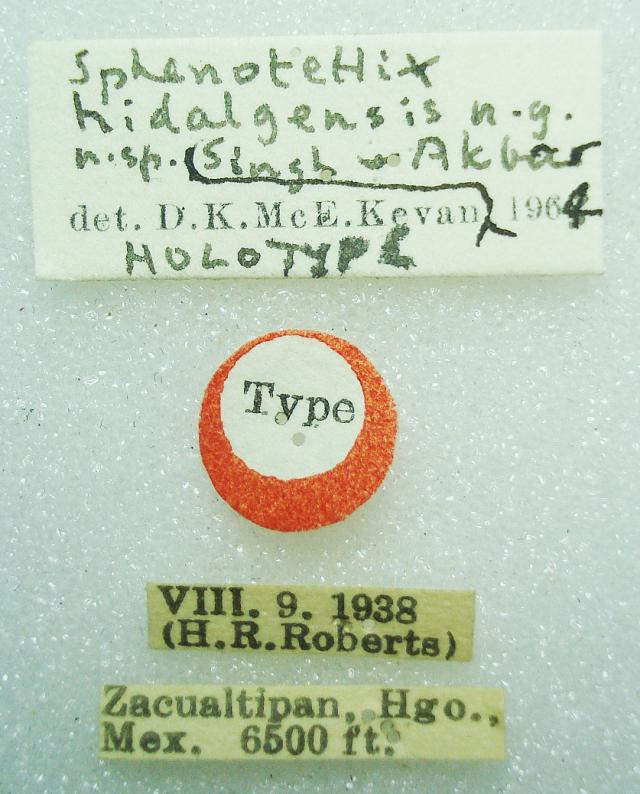 Sphenotettix
hidalgensis n.g.
n.sp. Singh - Akbar
det. D.K.McE.Kevan, 1964
HOLOTYPE
Type
VIII. 9. 1938
(H.R.Roberts)
Zacualtipan, Hgo.,
Mex. 6500 ft.